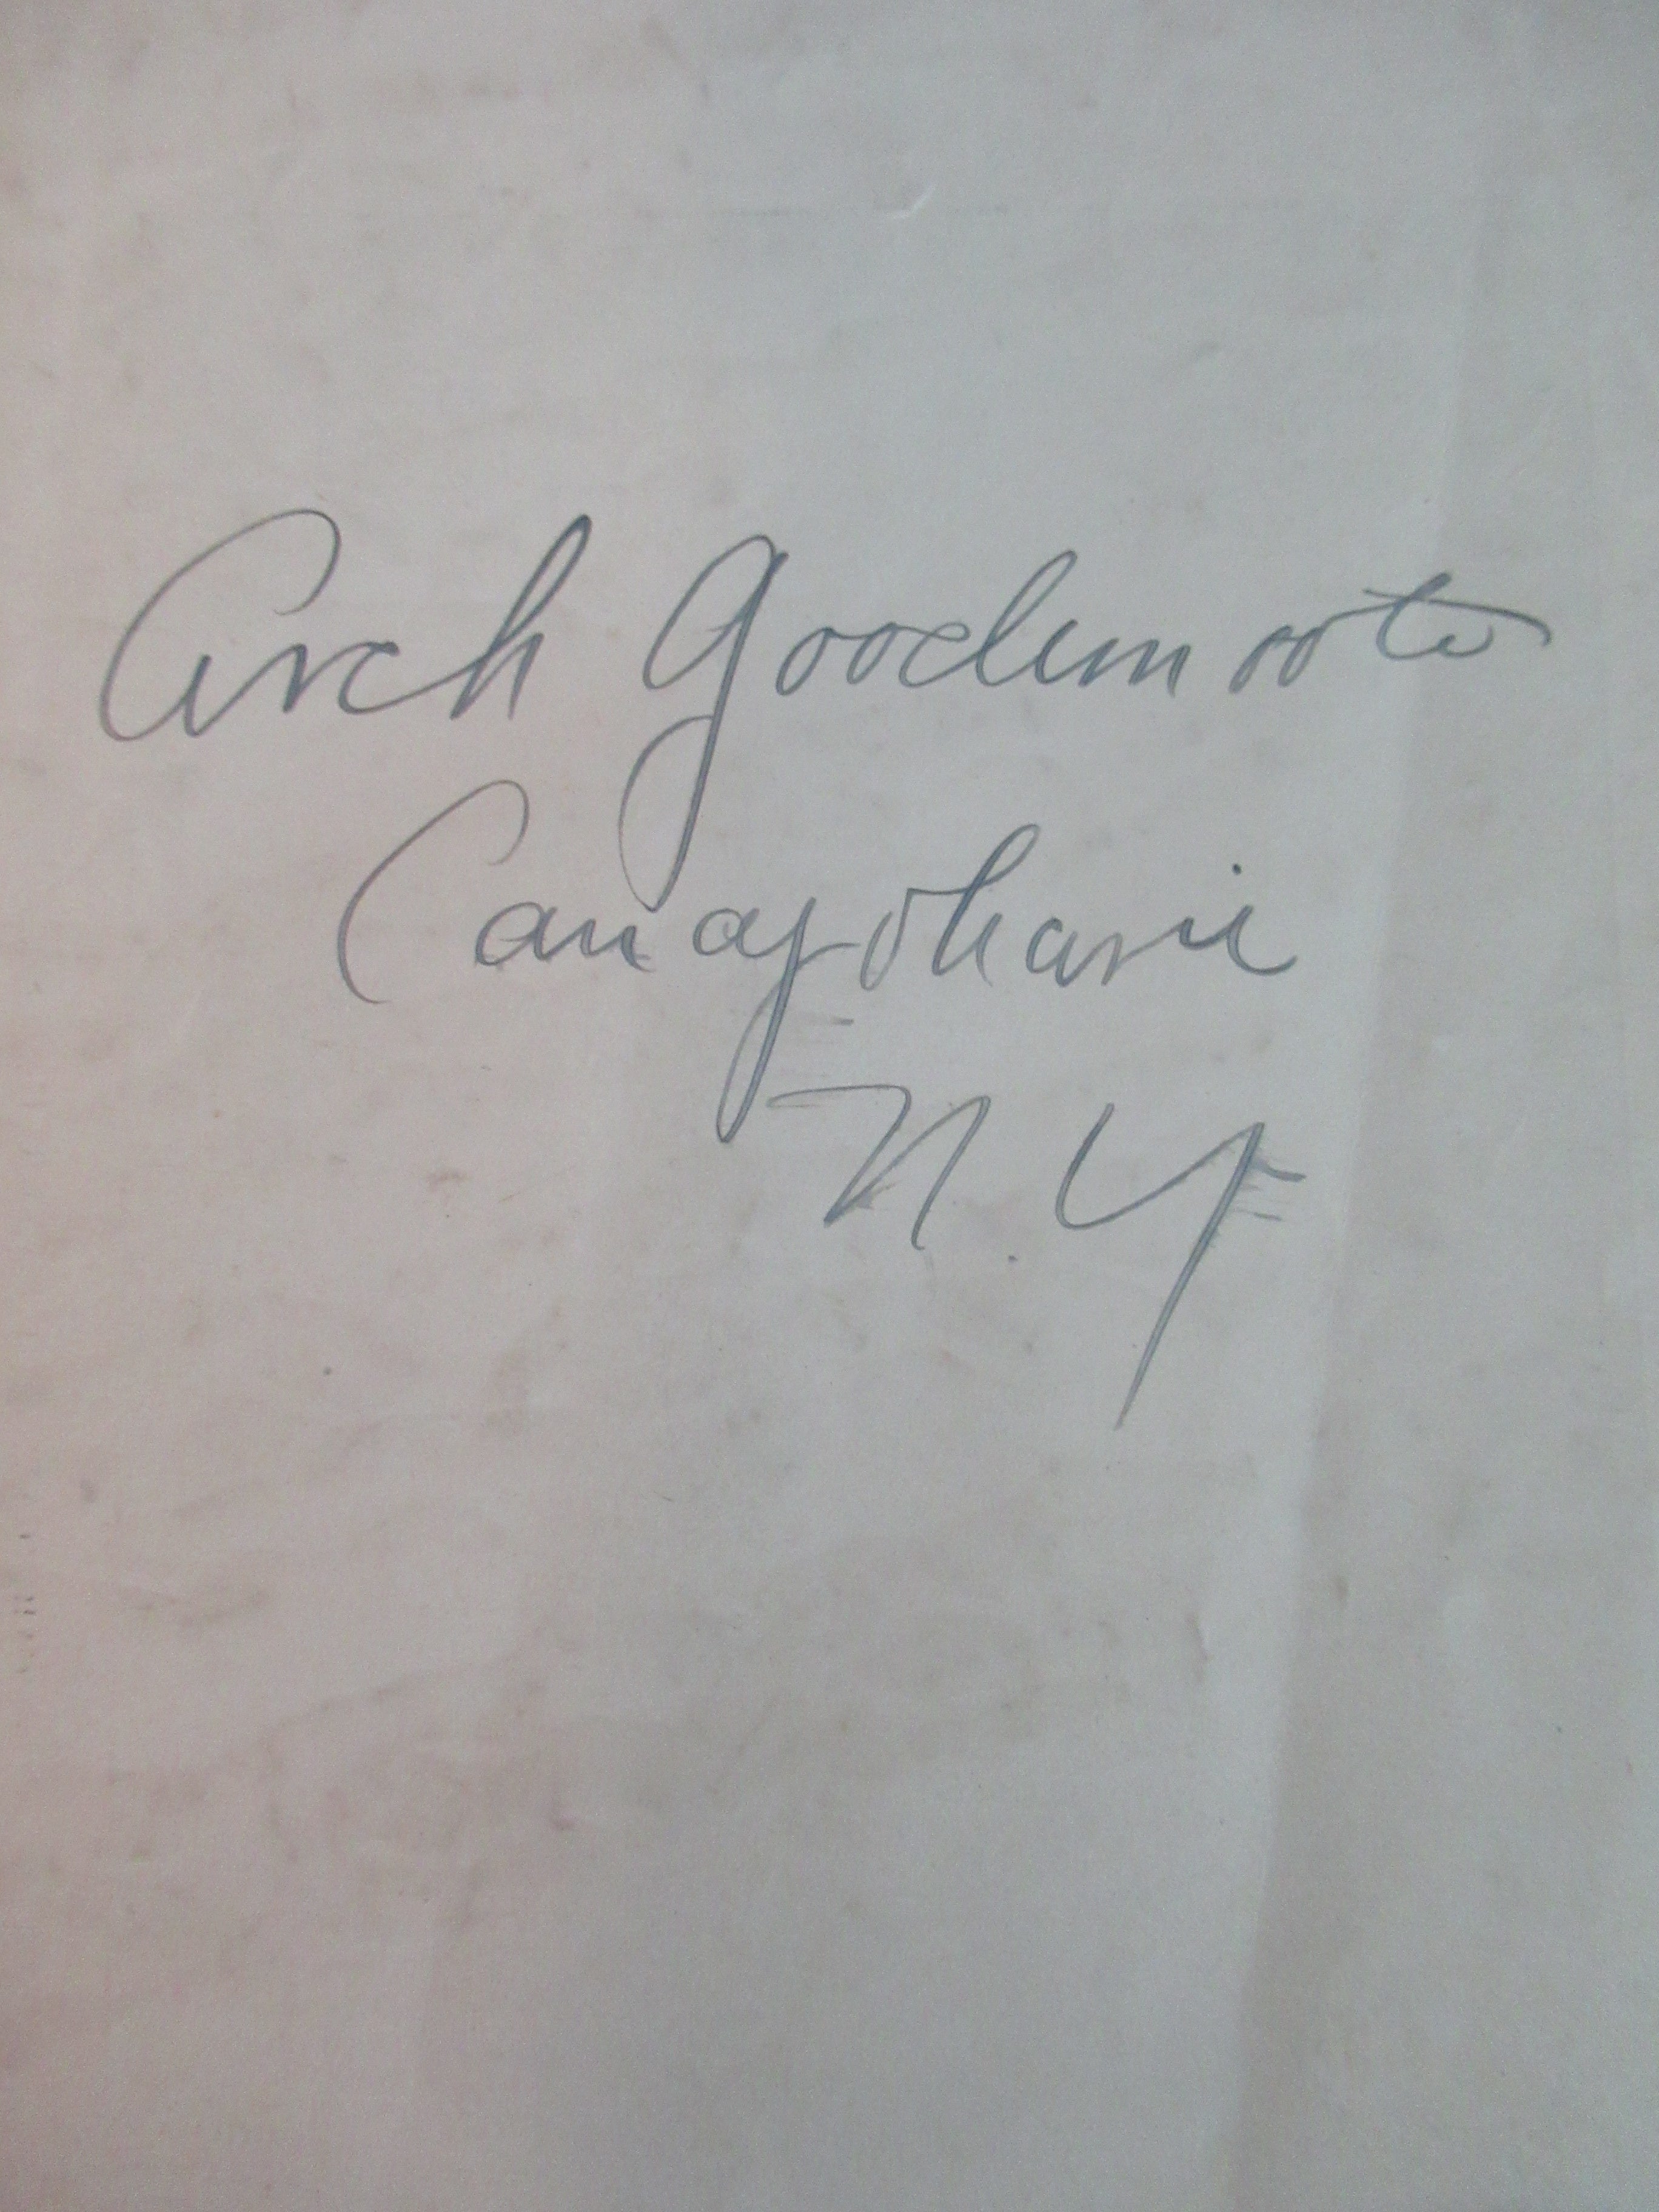 Arch Goodemoote
Canajoharie
N.Y